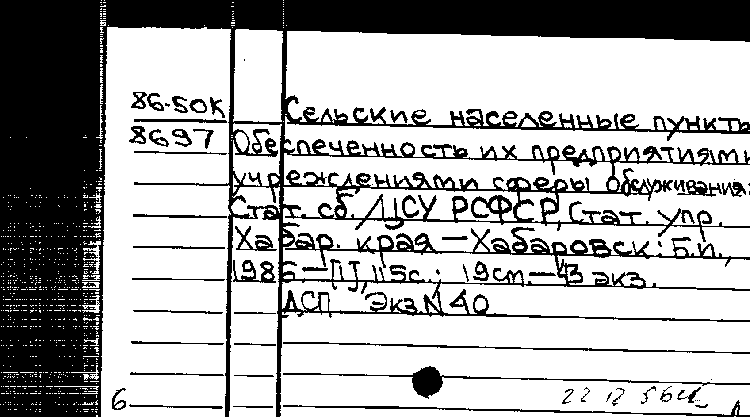 86-50К Сельские населенные пункты
8697 Обеспеченность их предприятиями
учреждениями сферы обслуживания:
Стат. сб. / ЦСУ РСФСР, Стат. упр.
Хабар. края — Хабаровск: Б.и.,
1986.— 115с.; 19см.—43 экз.
ДСП Экз N 40
6 22 12